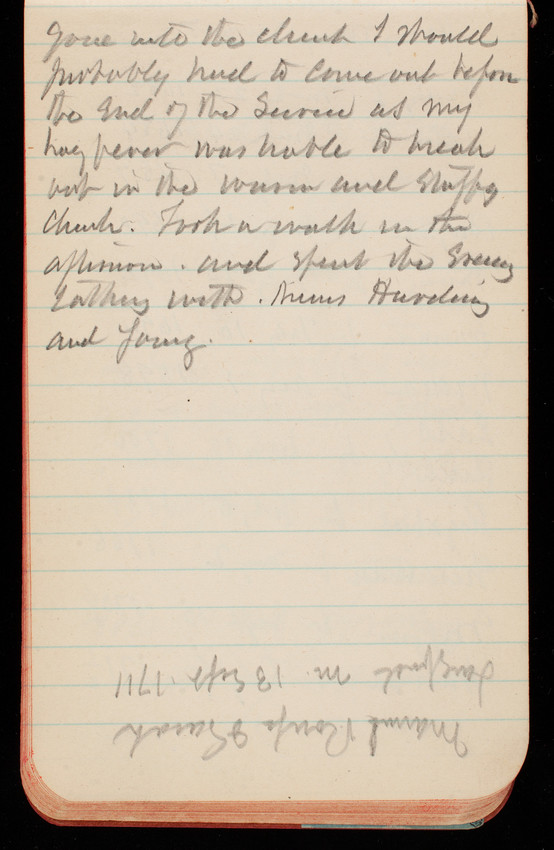 gone into the church I should
probably had to come out before
the end of the service as my
hay fever was liable to break
out in the warm and stuffy
church. Took a walk in the
afternoon. and spent the evening
talking with. Harding
and Young.
13 Sept. 1711